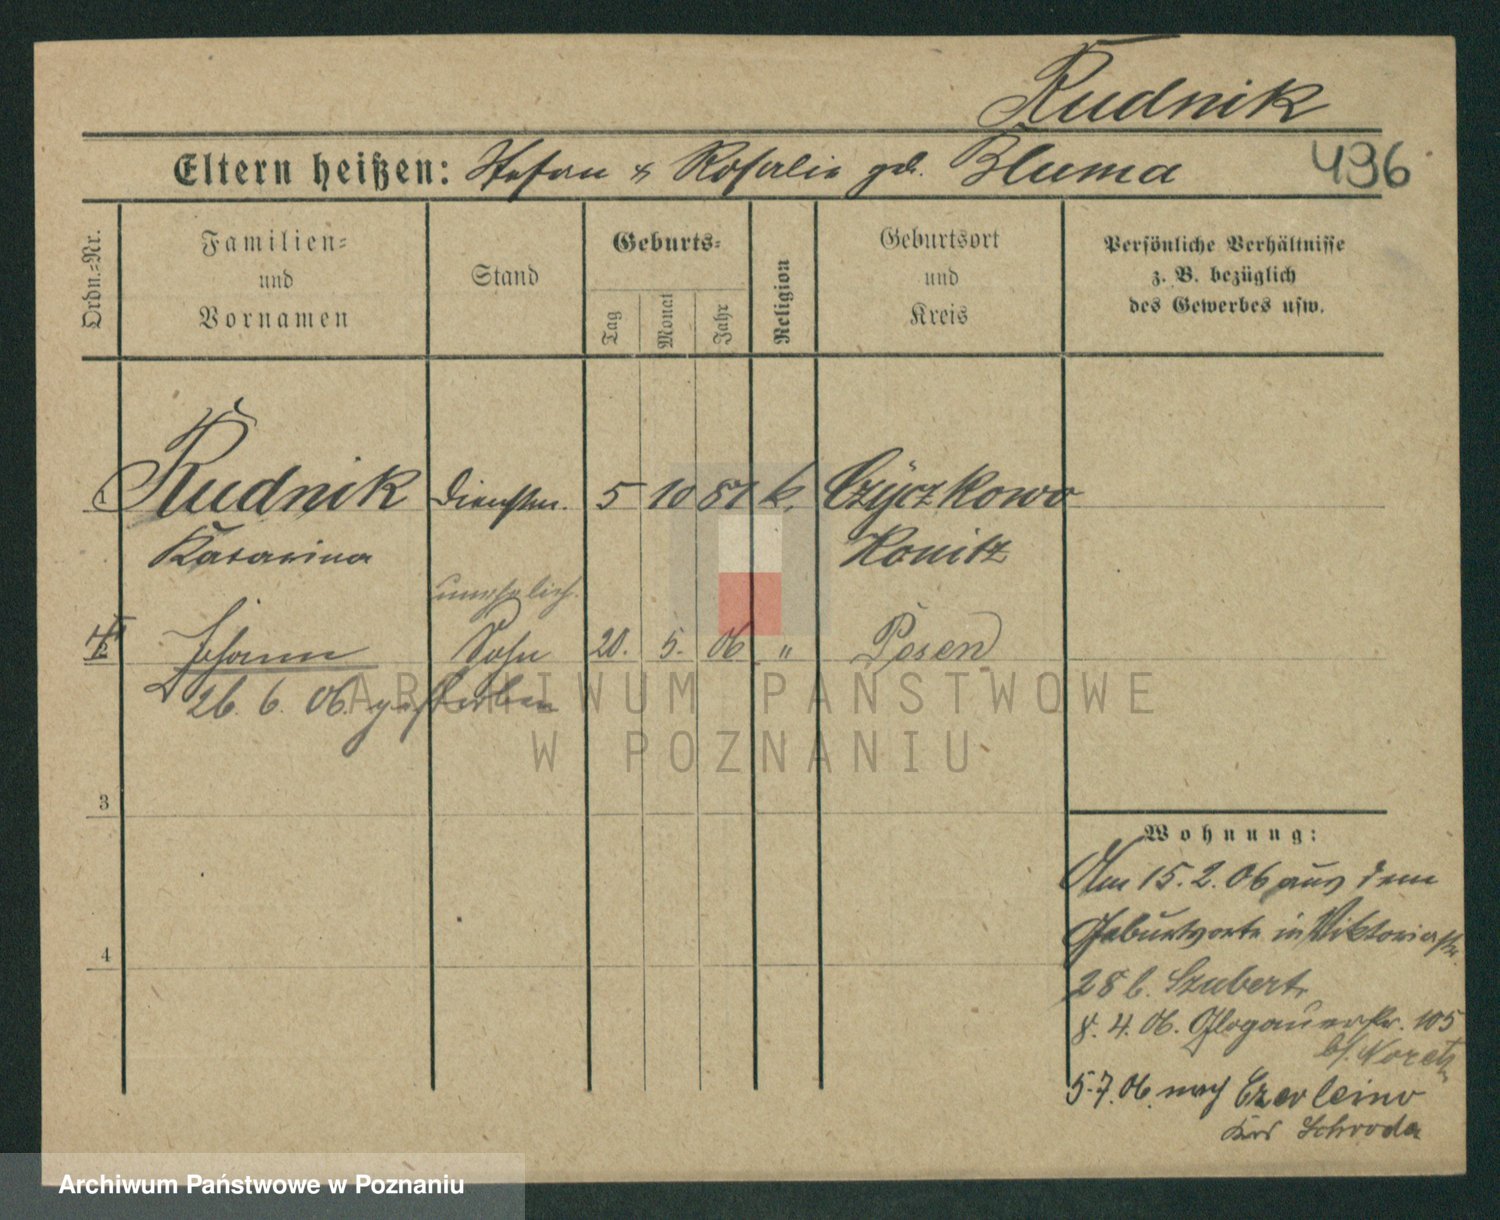 Rudnik
Eltern heißen: Stefan & Rosalie geb. Bluma
496
Ordn.-Nr.
Familien-
und
Vornamen
Stand
Geburts-
Tag
Monat
Jahr
Religion
Geburtsort
und
Kreis
Persönliche Verhältnisse
z. B. bezüglich
des Gewerbes usw.
1 Rudnik Dienstm. 5 10 81 k. Czyczkowo
Katarina Konitz
unehelich.
2 Johann Sohn 20. 5. 06 " Posen
26. 6. 06. gestorben
3
4
Wohnung:
Am 15.2.06 aus dem
Geburtsorte in Viktoriastr.
28 b. Szubert
8. 4. 06. Glogauerstr. 105
b/
5.7.06. nach Czerleino
Krs Schroda
ARCHIWUM PAŃSTWOWE
W POZNANIU
Archiwum Państwowe w Poznaniu